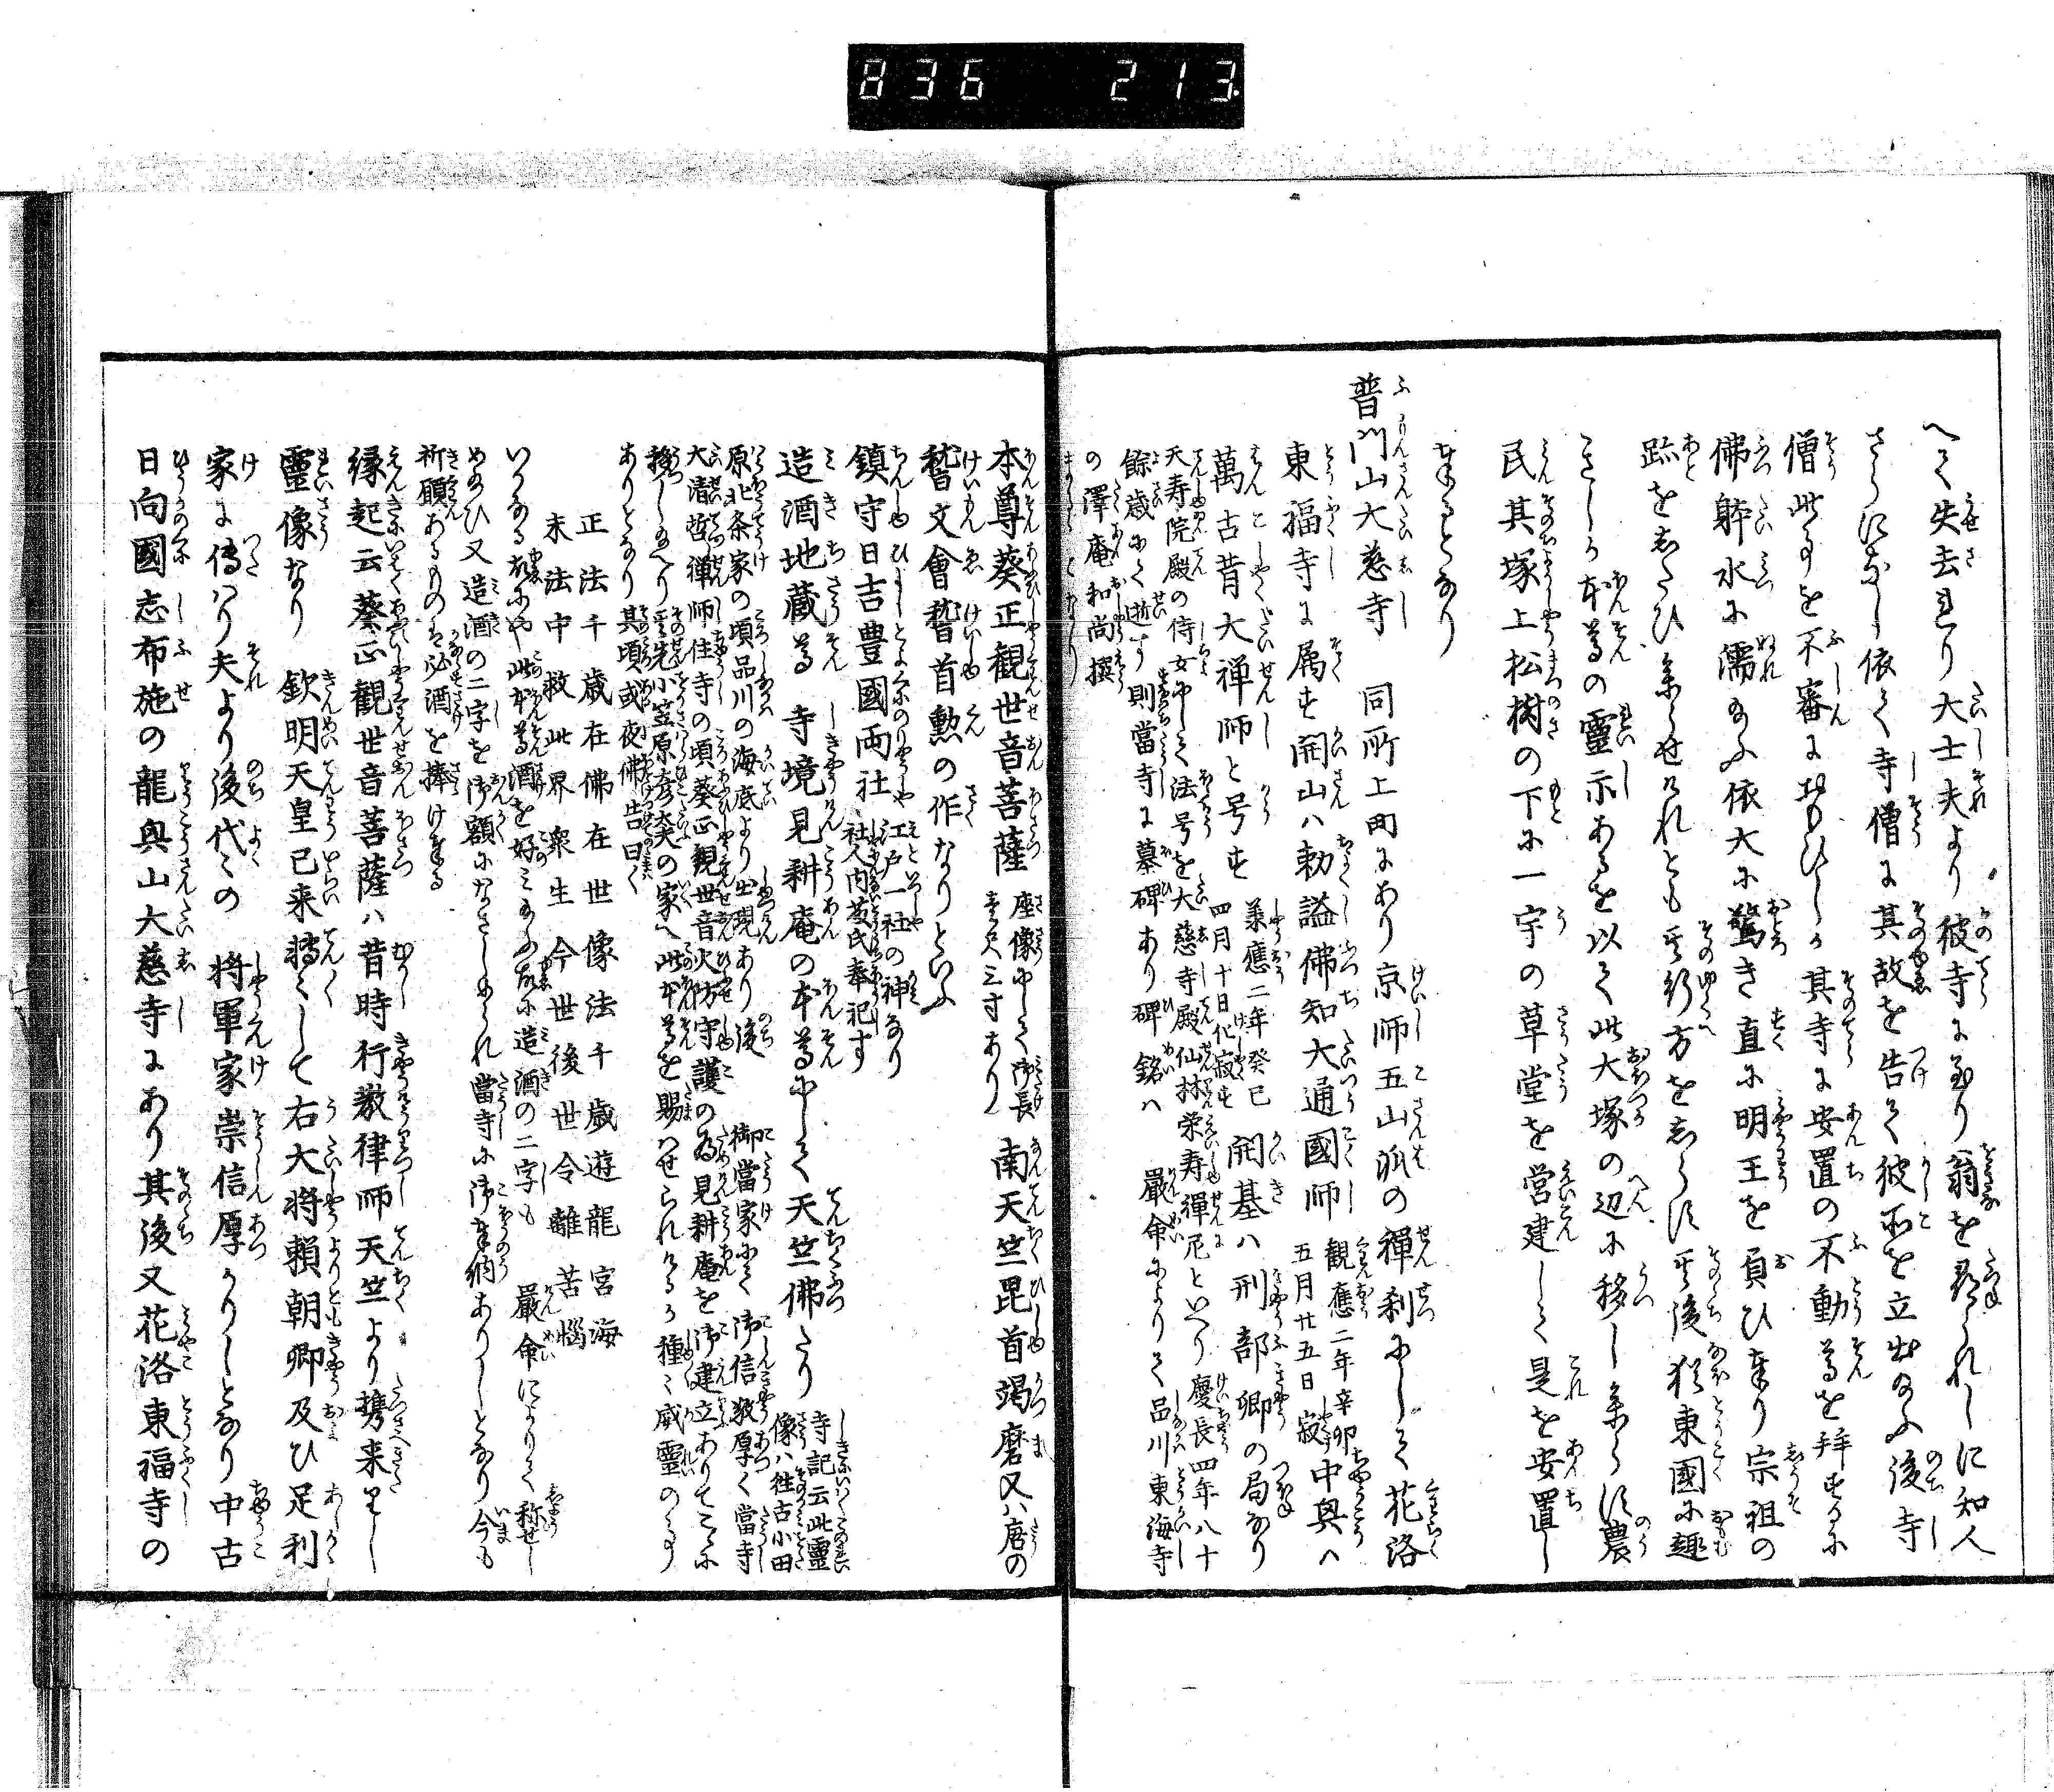 836 213
へて失去れり大士夫より彼寺に至り翁を尋られしに知人
さらになし依て寺僧に其故を告て彼所を立出給ふ後寺
僧此事を不審に思ひしか其寺に安置の不動尊を拝するに
佛躰水に濡給ふ依大に驚き直に明王を負ひ奉り宗祖の
跡をしたひ参らせけれとも其行方をしらす其後猶東國に趣
きしか本尊の霊示あるを以て此大塚の辺に移し参らす農
民其塚上松樹の下に一宇の草堂を営建して是を安置し
奉るとなり
普門山大慈寺 同所上町にあり京師五山派の禅刹にして花洛
東福寺に属す開山ハ勅謚佛知大通國師 観應二年辛卯五月廿五日寂 中興ハ
萬古昔大禅師と号す 承應二年癸巳四月十日化寂す 開基ハ刑部卿の局なり
天寿院殿の侍女にして法号を大慈寺殿仙林栄寿禅尼といへり慶長四年八十
餘歳にて逝す則當寺に墓碑あり碑銘ハ 嚴命によりて品川東海寺
の澤庵和尚撰
本尊葵正観世音菩薩 座像にして御長壱尺三寸あり 南天竺毘首羯磨又ハ唐の
稽文會稽首勲の作なりといふ
鎮守日吉豊國両社 江戸一社の神なり社人内茂氏奉祀す
造酒地蔵尊 寺境見耕庵の本尊にして天竺佛たり 寺記云此霊像ハ往古小田
原北条家の頃品川の海底より出現あり後 御當家にて御信敬厚く當寺
大潜哲禅師住寺の頃葵正観世音火防守護の為見耕庵を御建立ありてこゝに
移し給へり其先小笠原彦大夫の家へ此本尊を賜ハせられけるか種々威霊のる事
ありとなり其頃或夜佛告曰く
正法千歳在佛在世 像法千歳遊龍宮海
末法中救此界衆生 今世後世令離苦惱
いかなる故にや此本尊酒を好ミ給ふ故に造酒の二字も 嚴命によりて称せし
め給ひ又造酒の二字を御額になさしめられ當寺に御奉納ありしとなり今も
祈願あるものは必酒を捧け奉る
縁起云葵正観世音菩薩ハ昔時行教律師天竺より携来りし
靈像なり 欽明天皇已来轉々して右大将頼朝卿及ひ足利
家に傳ハり夫より後代々の 将軍家崇信厚かりしとなり中古
日向國志布施の龍興山大慈寺にあり其後又花洛東福寺の